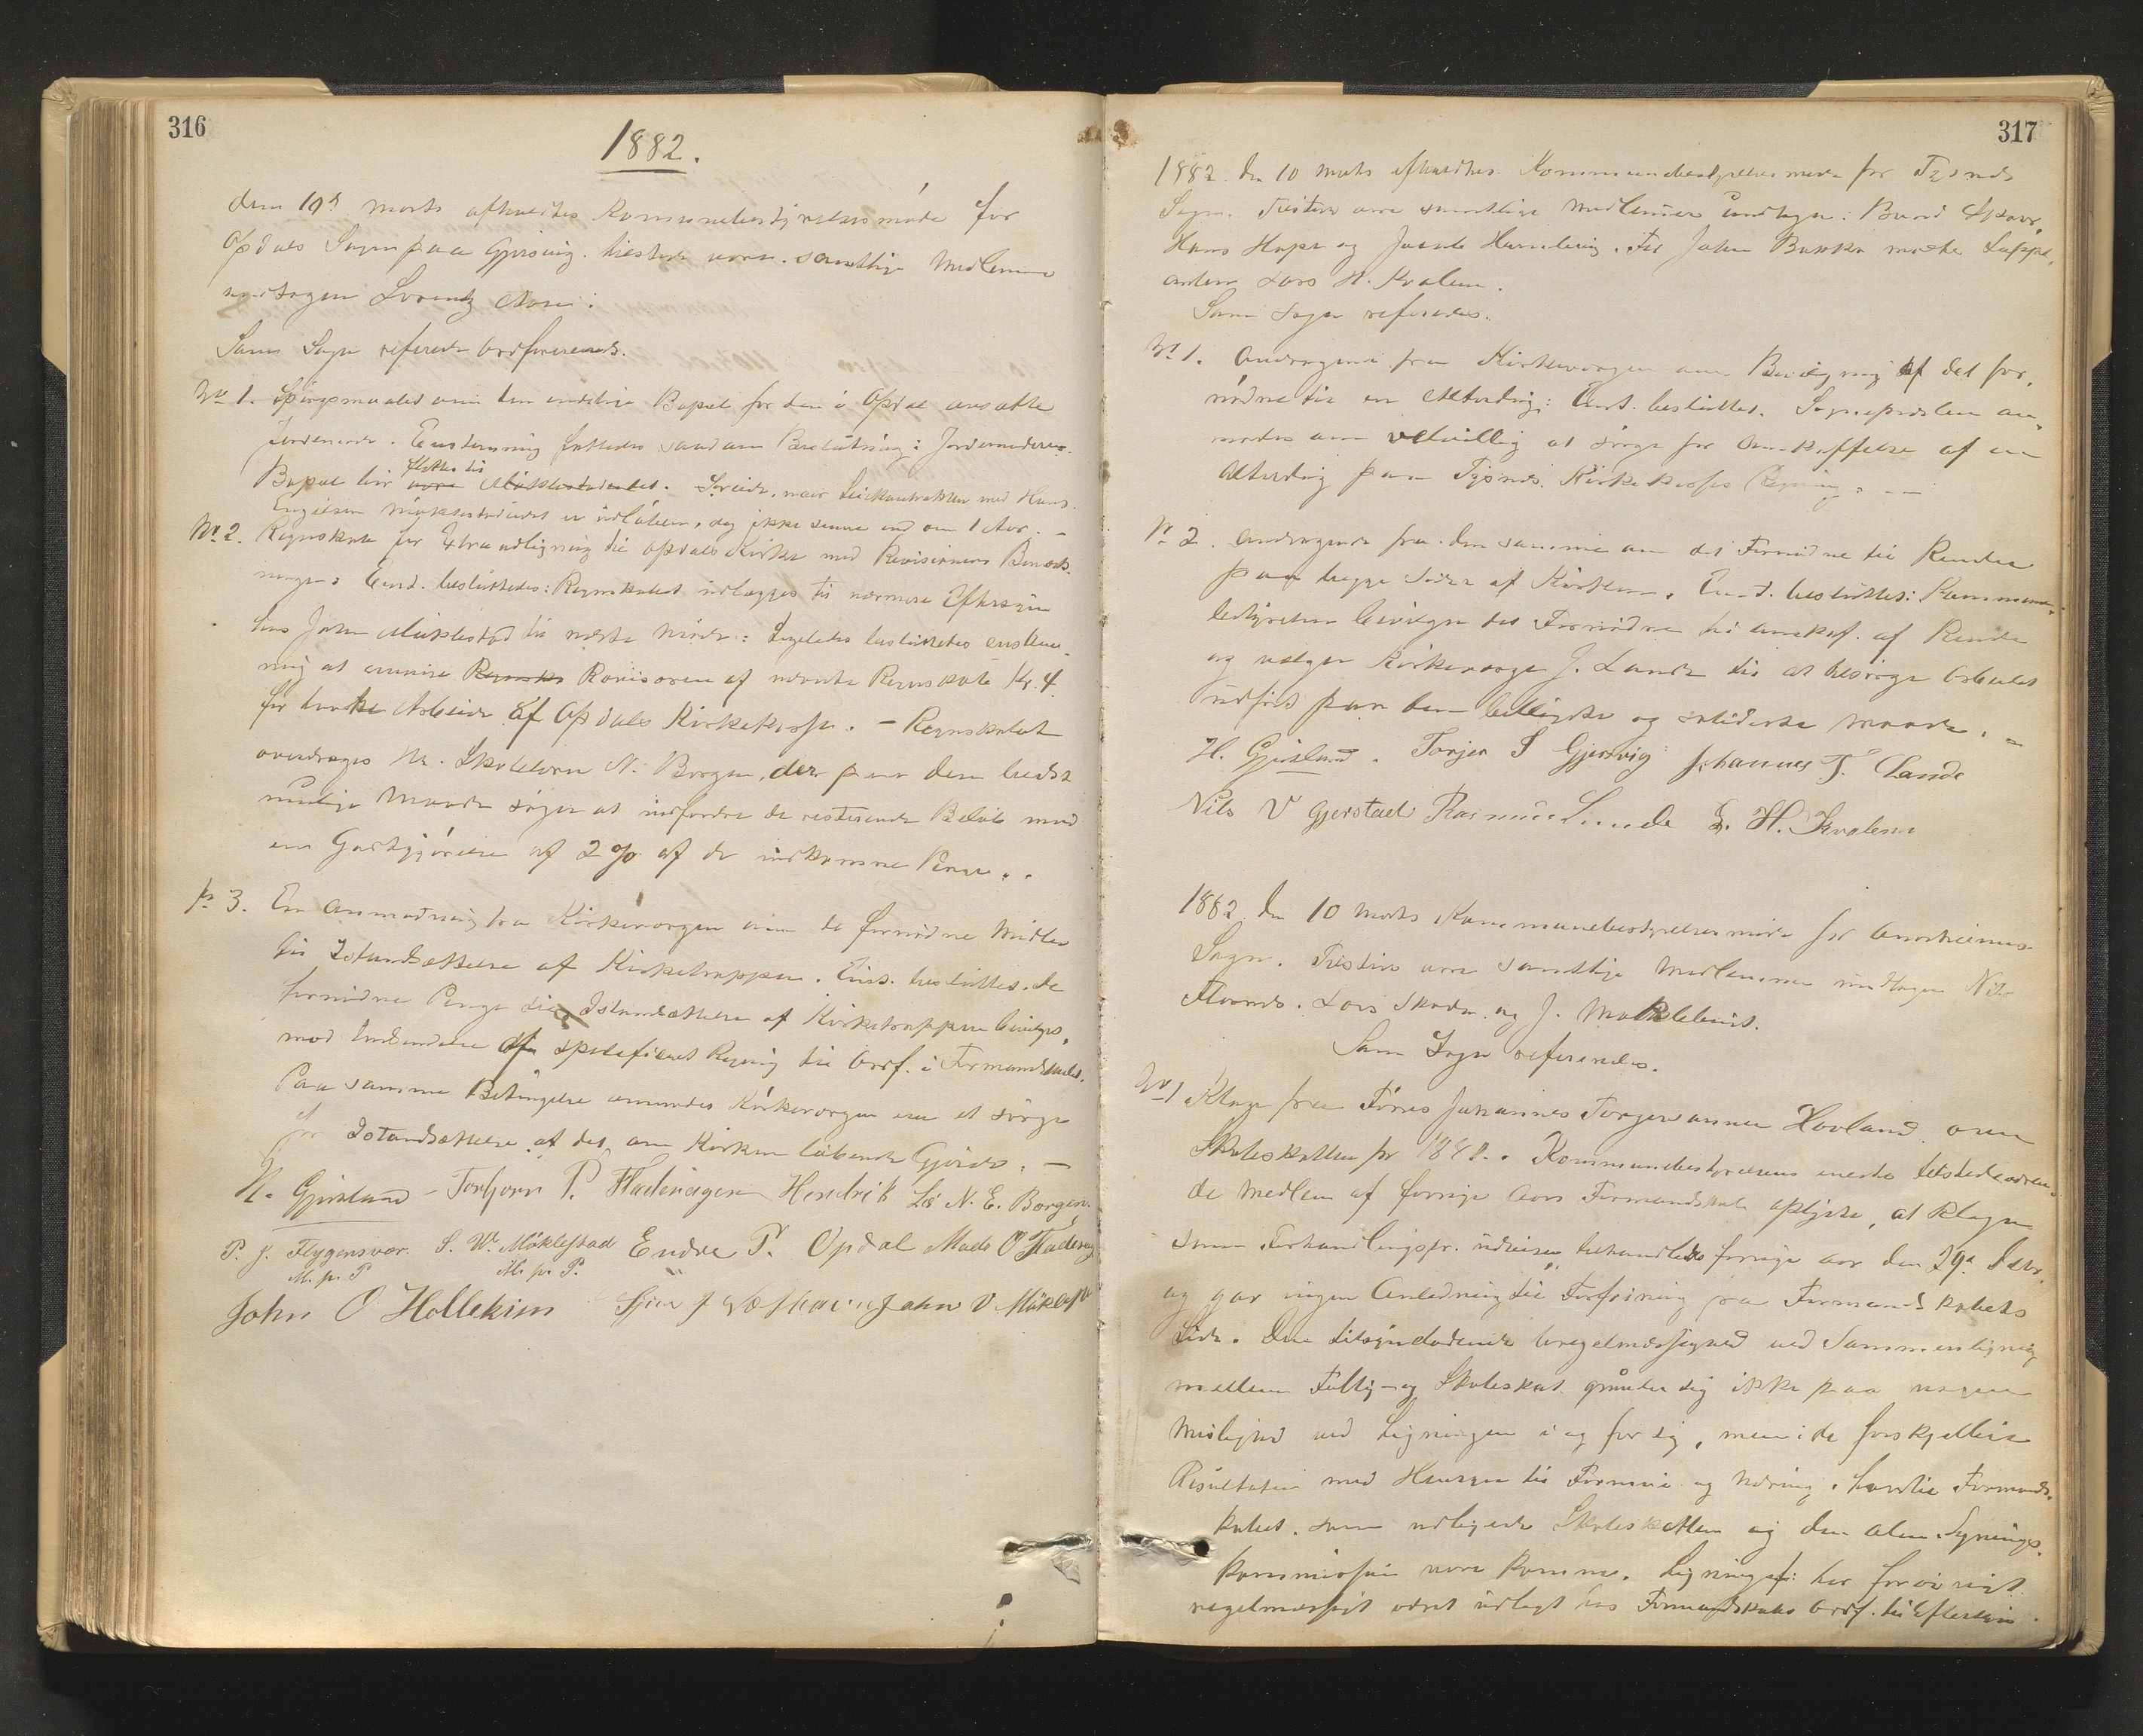 316
1882.
den 10de marts afholdtes Kommunebestyrelsesmøde for
Opdals Sogn paa Gjøsing. tilstede vare samtlige Medlemmer
undtagen Lorentz
Samme Sager refererede Ordføreren
No 1. Spørgsmaalet om den endelige Bopæl for den i Opdal ansatte
Jordemoder. Eenstemmig fattedes saadan Beslutning: Jordemoderens
flyttes til
Bopæl bør være Møklestadvedet. Sreide, naar Leiekontrakten med Hans
Engelsen Møklestadvedet er udløben, dog ikke senere end om 1 Aar. –
No 2. Regnskab for Extraudligning til Opdals Kirke med Revisionens Bemærk-
ninger. Eenst. besluttedes: Regnskabet udlægges til nærmere Eftersyn
hos John Møklestad til næste Møde: Ligeledes besluttedes enstem-
mig at Revisoren af nævnte Regnskab Kr. 4
for hans Arbeide af Opdals Kirkekasse. – Regnskabet
overdrages Hr. Skolelærer N. Borgen, der paa den bedst
mulige Maade søger at indfordre de resterende Beløb mod
en Godtgjørelse af 2 % af de indkomne Penge.
No 3. En anmodning fra Kirkevergen om de fornødne Midler
til Istandsættelse af Kirketrappen. Eens. besluttes. De
fornødne Penge til Istandsættelse af Kirketrappen bevilges,
mod Indsendelse af specificeret Regning til Ordf. i Formandskabet.
Paa samme Betingelse anmodes Kirkevergen om at sørge
for Istandsættelse af det om Kirken løbende Gjærde. –
H. Gjøsland – Torbjørn P. Fladeragen Hendrik N. E. Borgen.
P. J. Flygensvær. S. W. Møklestad Endre P. Opdal Mads O Fladerag
M. p. P M. p. P.
John O Hollekim John O Møklest

317
1882. den 10 marts afholdtes Kommunebestyrelsesmøde for Tysnes
Sogn. Tilstede vare samtlige Medlemmer undtagen: Baard
Hans Hope og Jacob. For John Bakka mødte Supple-
anten Lars H. Kvalem.
Samme Sager refereredes.
No 1. Andragende fra Kirkevergen om Bevilgning af det for-
nødne til en Altardug: Eenst. besluttet. Sognepræsten an-
modes om velvillig at sørge for Anskaffelse af en
Alterdug paa Tysnes Kirkekasses Regning. –
No 2. Andragende fra den samme om det Fornødne til Render
paa begge Sider af Kirken. Eenst. besluttet: Kommune-
bestyrelsen bevilger det Fornødne til anskaf. af Render
og vælger Kirkeverge J. Lande til at besørge Arbeidet
udført paa den billigste og solideste Maade. –
H. Gjøsland. Torger S Gjersvig Johannes T. Lande
Nils V Gjerstad Rasmus Lunde L. H. Kvalem
1882 den 10 Marts Kommunebestyrelsesmøde for Onarheims
Sogn. Tilstede vare samtlige Medlemmer undtagen Nils
Lars Skada og J. Møklebust.
Samme Sager refereredes.
No 1 Klage fra Tørres Johannes Torgersannen Hovland over
Skoleskatten for 1881. Kommunebestyrelsens eneste tilstedeværen-
de Medlem af forrige Aars Formandskab oplyste, at Klagen
som Forhandlingspr. udviser behandledes forrige Aar den 29de Decbr.
og gav ingen Anledning til Forføining fra Formandskabets
Side. Den tilsyneladende Uregelmæssighed ved Sammenligning
mellem Fattig- og Skoleskat grunder sig ikke paa nogen
Mislighed ved Ligningen i og for sig, men i de forskjellige
Resultater med Hensyn til Formue og Næring, hvortil Formands-
kabet, som udlignede Skoleskatten og den alm. Lignings-
kommission vare komne. Ligningsf: har forøvrigt
regelmæssigt været udlagt hos Formandskabets Ordf. til Eftersyn.